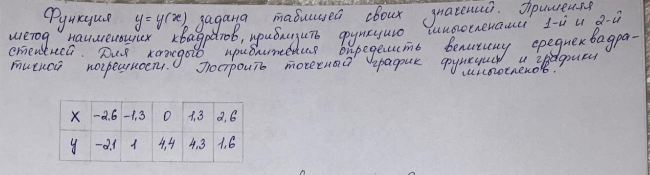 Функция y=y(x) задана таблицей своих значений. Применяя
метод наименьших квадратов, приблизить функцию многочленами 1-й и 2-й
степеней. Для каждого приближения определить величину среднеквадра-
тичной погрешности. Построить точечный график функции и графики
многочленов.
x -2,6 -1,3 0 1,3 2,6
y -2,1 1 4,4 4,3 1,6